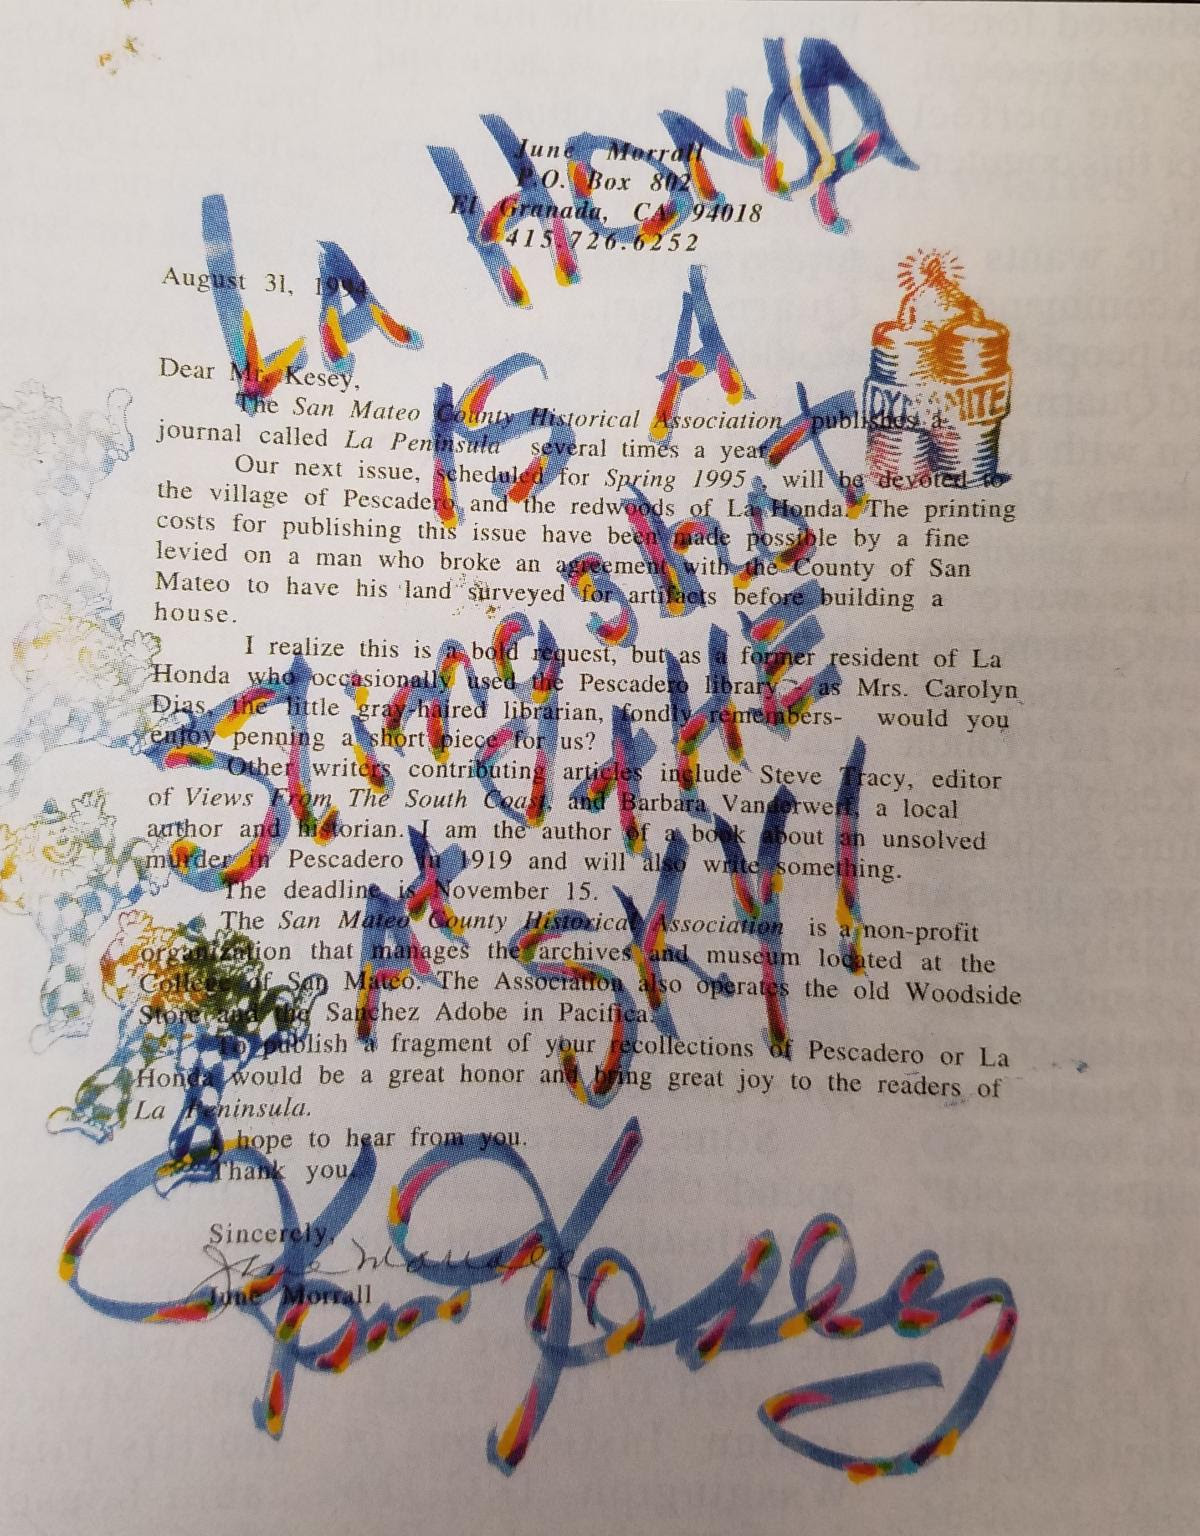 LA HONDA
IS A
June Morrall
P.O. Box 802
El Granada, CA 94018
415.726.6252
August 31, 1994
DYNAMITE
Dear Mr. Kesey,
The San Mateo County Historical Association publishes a
journal called La Peninsula several times a year.
Our next issue, scheduled for Spring 1995, will be devoted to
the village of Pescadero and the redwoods of La Honda. The printing
costs for publishing this issue have been made possible by a fine
levied on a man who broke an agreement with the County of San
Mateo to have his land surveyed for artifacts before building a
house.
I realize this is a bold request, but as a former resident of La
Honda who occasionally used the Pescadero library - as Mrs. Carolyn
Dias, the little gray-haired librarian, fondly remembers- would you
enjoy penning a short piece for us?
Other writers contributing articles include Steve Tracy, editor
of Views From The South Coast, and Barbara Vanderwerf, a local
author and historian. I am the author of a book about an unsolved
murder in Pescadero in 1919 and will also write something.
The deadline is November 15.
The San Mateo County Historical Association is a non-profit
organization that manages the archives and museum located at the
College of San Mateo. The Association also operates the old Woodside
Store and the Sanchez Adobe in Pacifica.
To publish a fragment of your recollections of Pescadero or La
Honda would be a great honor and bring great joy to the readers of
La Peninsula.
I hope to hear from you.
Thank you.
Sincerely,
June Morrall
June Morrall
Ken Kesey